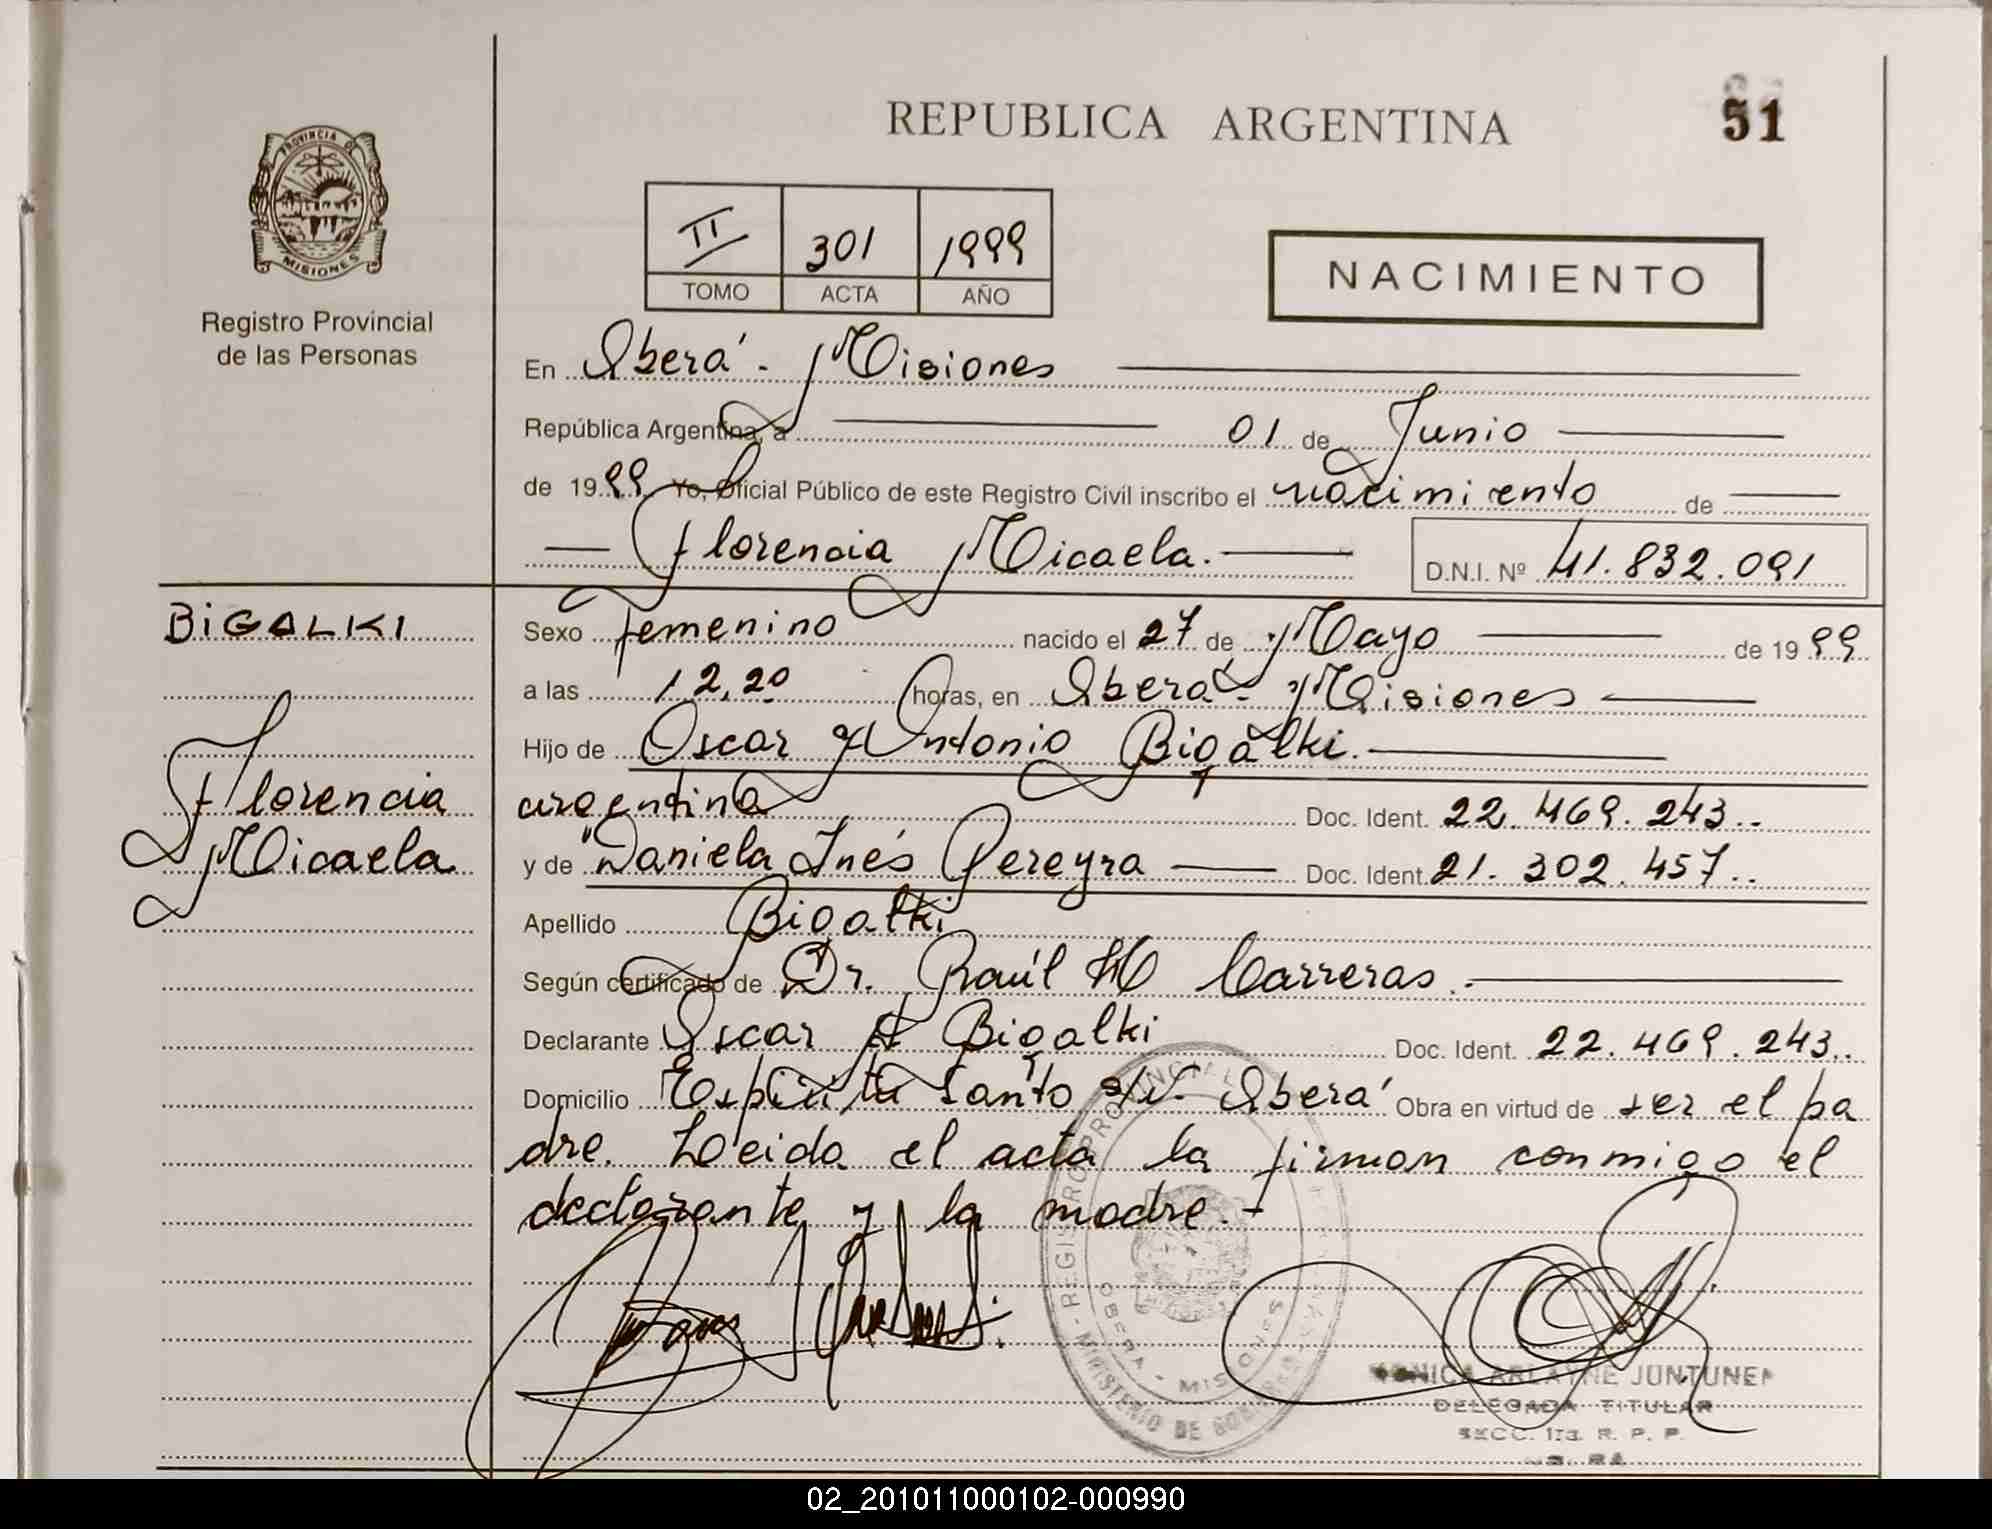 REPUBLICA ARGENTINA
51
PROVINCIA DE
MISIONES
Registro Provincial
de las Personas
II 301 1999
TOMO ACTA AÑO
NACIMIENTO
En Oberá - Misiones
República Argentina, a 01 de Junio
de 1999 Yo, Oficial Público de este Registro Civil inscribo el nacimiento de
Florencia Micaela.
D.N.I. Nº 41.832.091
BiGALKI
Florencia
Micaela
Sexo femenino nacido el 27 de Mayo de 1999
a las 12,20 horas, en Oberá - Misiones
Hijo de Oscar Antonio Bigalki.
argentina Doc. Ident. 22.469.243..
y de Daniela Inés Pereyra Doc. Ident. 21.302.457..
Apellido Bigalki
Según certificado de Dr. Raúl H Carreras.
Declarante Oscar A Bigalki Doc. Ident. 22.469.243..
Domicilio Espíritu Santo s/N. Oberá Obra en virtud de ser el pa
dre. Leida el acta la firman conmigo el
declarante y la madre.-
REGISTRO PROVINCIAL
MINISTERIO DE
OBERA - MISIONES
MONICA ARLAYNE JUNTUNEN
DELEGADA TITULAR
SECC. 1ra. R. P. P.
02_201011000102-000990